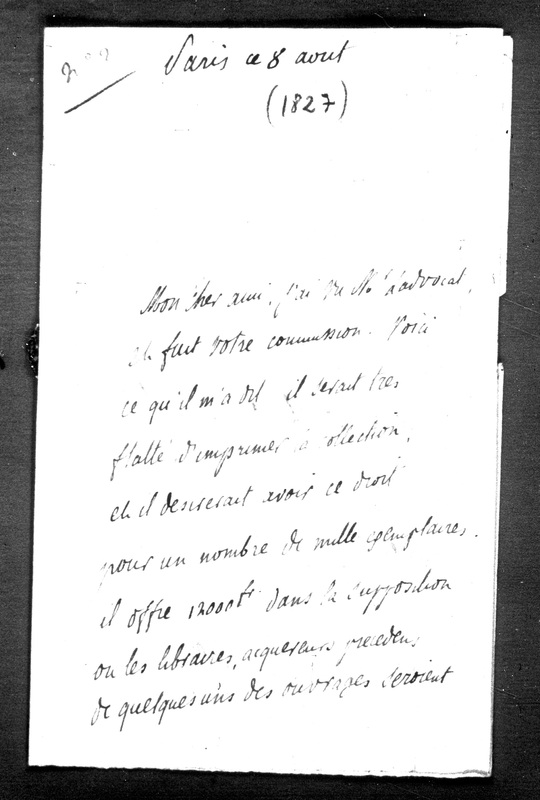 Paris ce 8 aout
(1827)
Mon cher ami, j'ai vu Mr Ladvocat,
et fait votre commission. Voici
ce qu'il m'a dit il serait tres
flatté d'imprimer la collection,
et il desirerait avoir ce droit
pour un nombre de mille exemplaires.
il offre 12000 fr dans la supposition
ou les libraires, acquereurs precedens
de quelques uns des ouvrages seroient